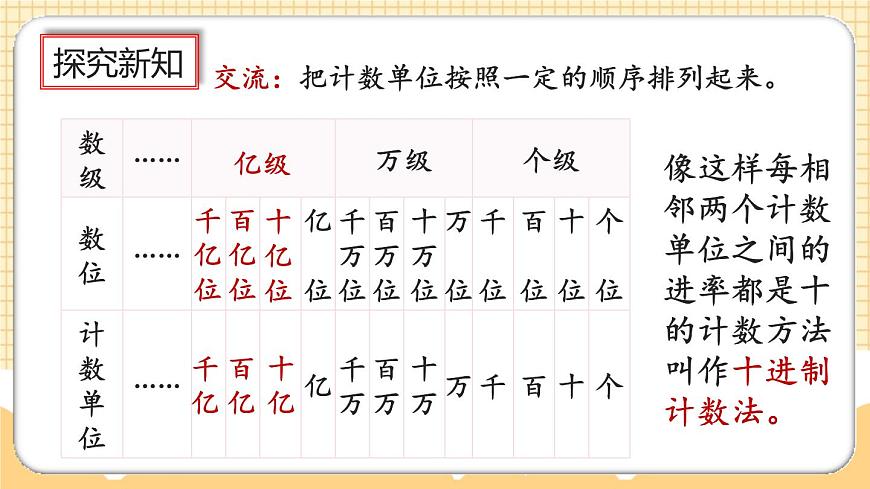 探究新知
交流：把计数单位按照一定的顺序排列起来。
数级 …… 亿级 万级 个级
数位 …… 千亿位 百亿位 十亿位 亿位 千万位 百万位 十万位 万位 千位 百位 十位 个位
计数单位 …… 千亿 百亿 十亿 亿 千万 百万 十万 万 千 百 十 个
像这样每相
邻两个计数
单位之间的
进率都是十
的计数方法
叫作十进制
计数法。